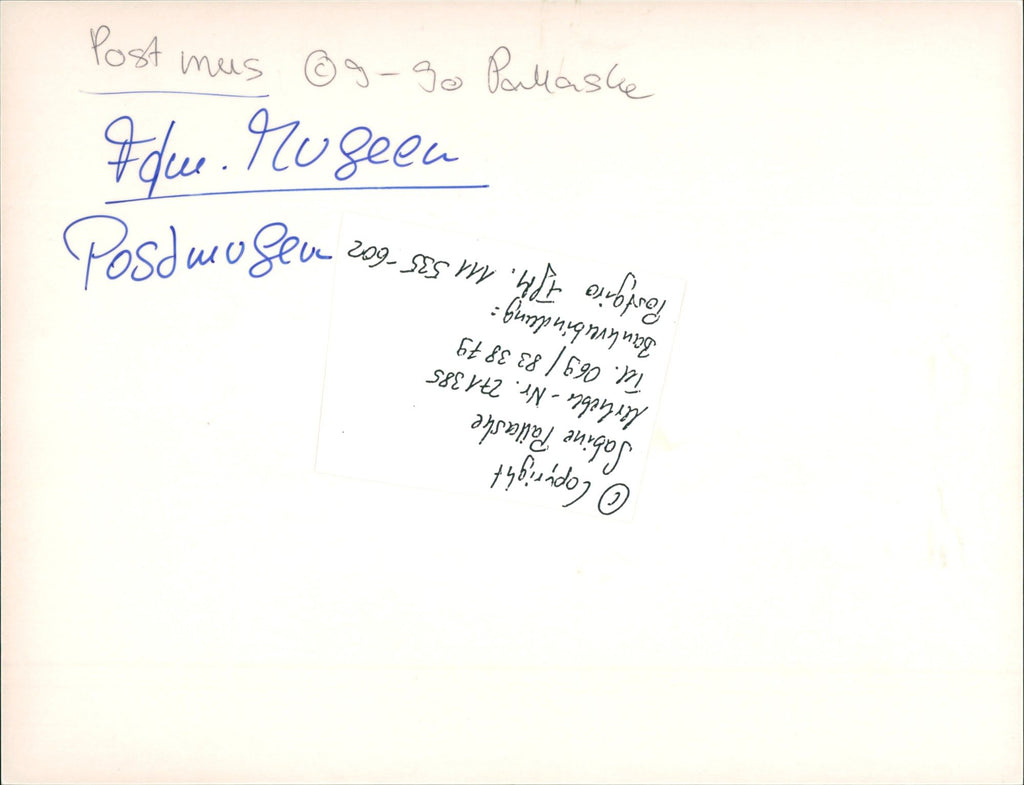 Post mus © 9-90 Pallaske
Ffm. Museen
Postmuseum
© Copyright
Sabine Pallaske
Urheber-Nr. 271385
Tel. 069/83 38 79
Bankverbindung:
Postgiro Ffm. 111 535-602